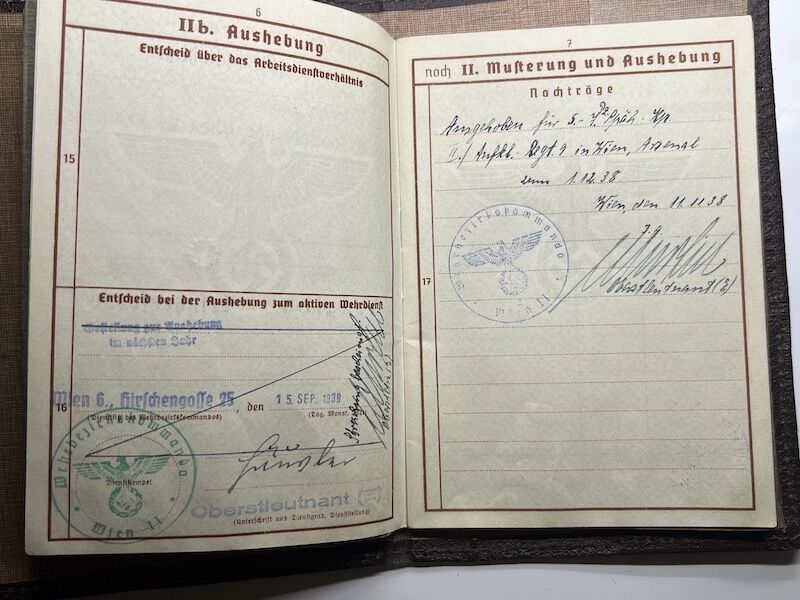 6
IIb. Aushebung
Entscheid über das Arbeitsdienstverhältnis
15
Entscheid bei der Aushebung zum aktiven Wehrdienst
zur Aushebung
im nächsten Jahr
Wien 6., Hirschengasse 25, den 15. SEP. 1938
16
(Dienstort des Wehrbezirkskommandos)
(Tag, Monat,
Wehrbezirkskommando
Wien II
Dienststempel
Oberstleutnant (E)
(Unterschrift und Dienstgrad, Dienststellung)
7
noch II. Musterung und Aushebung
Nachträge
Ausgehoben für 5.
II./ Aufkl. Regt. 9 in Wien, Arsenal
zum 1.12.38
Wien, den 11.11.38
Wehrbezirkskommando
17
Oberstleutnant (E)